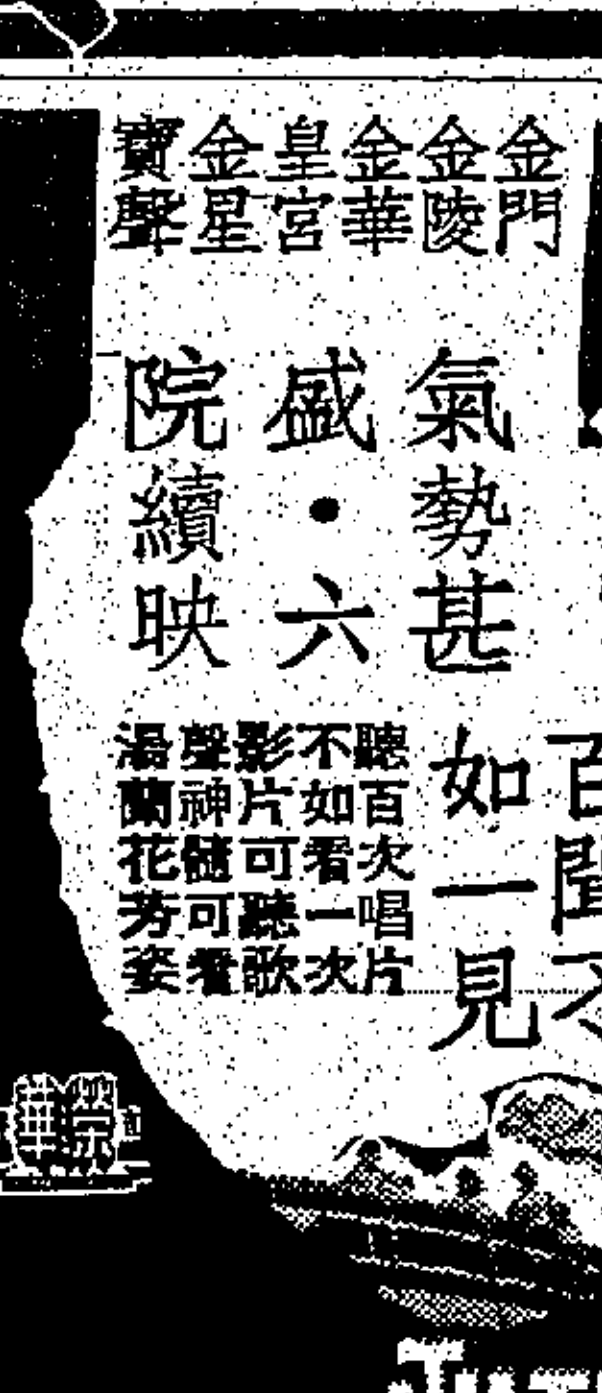 金門
金陵
金華
皇宮
金星
寶聲
氣勢甚
盛·六
院續映
百聞不
如一見
聽百次唱片
不如看一次
影片可聽歌
聲神髓可看
湯蘭花芳姿